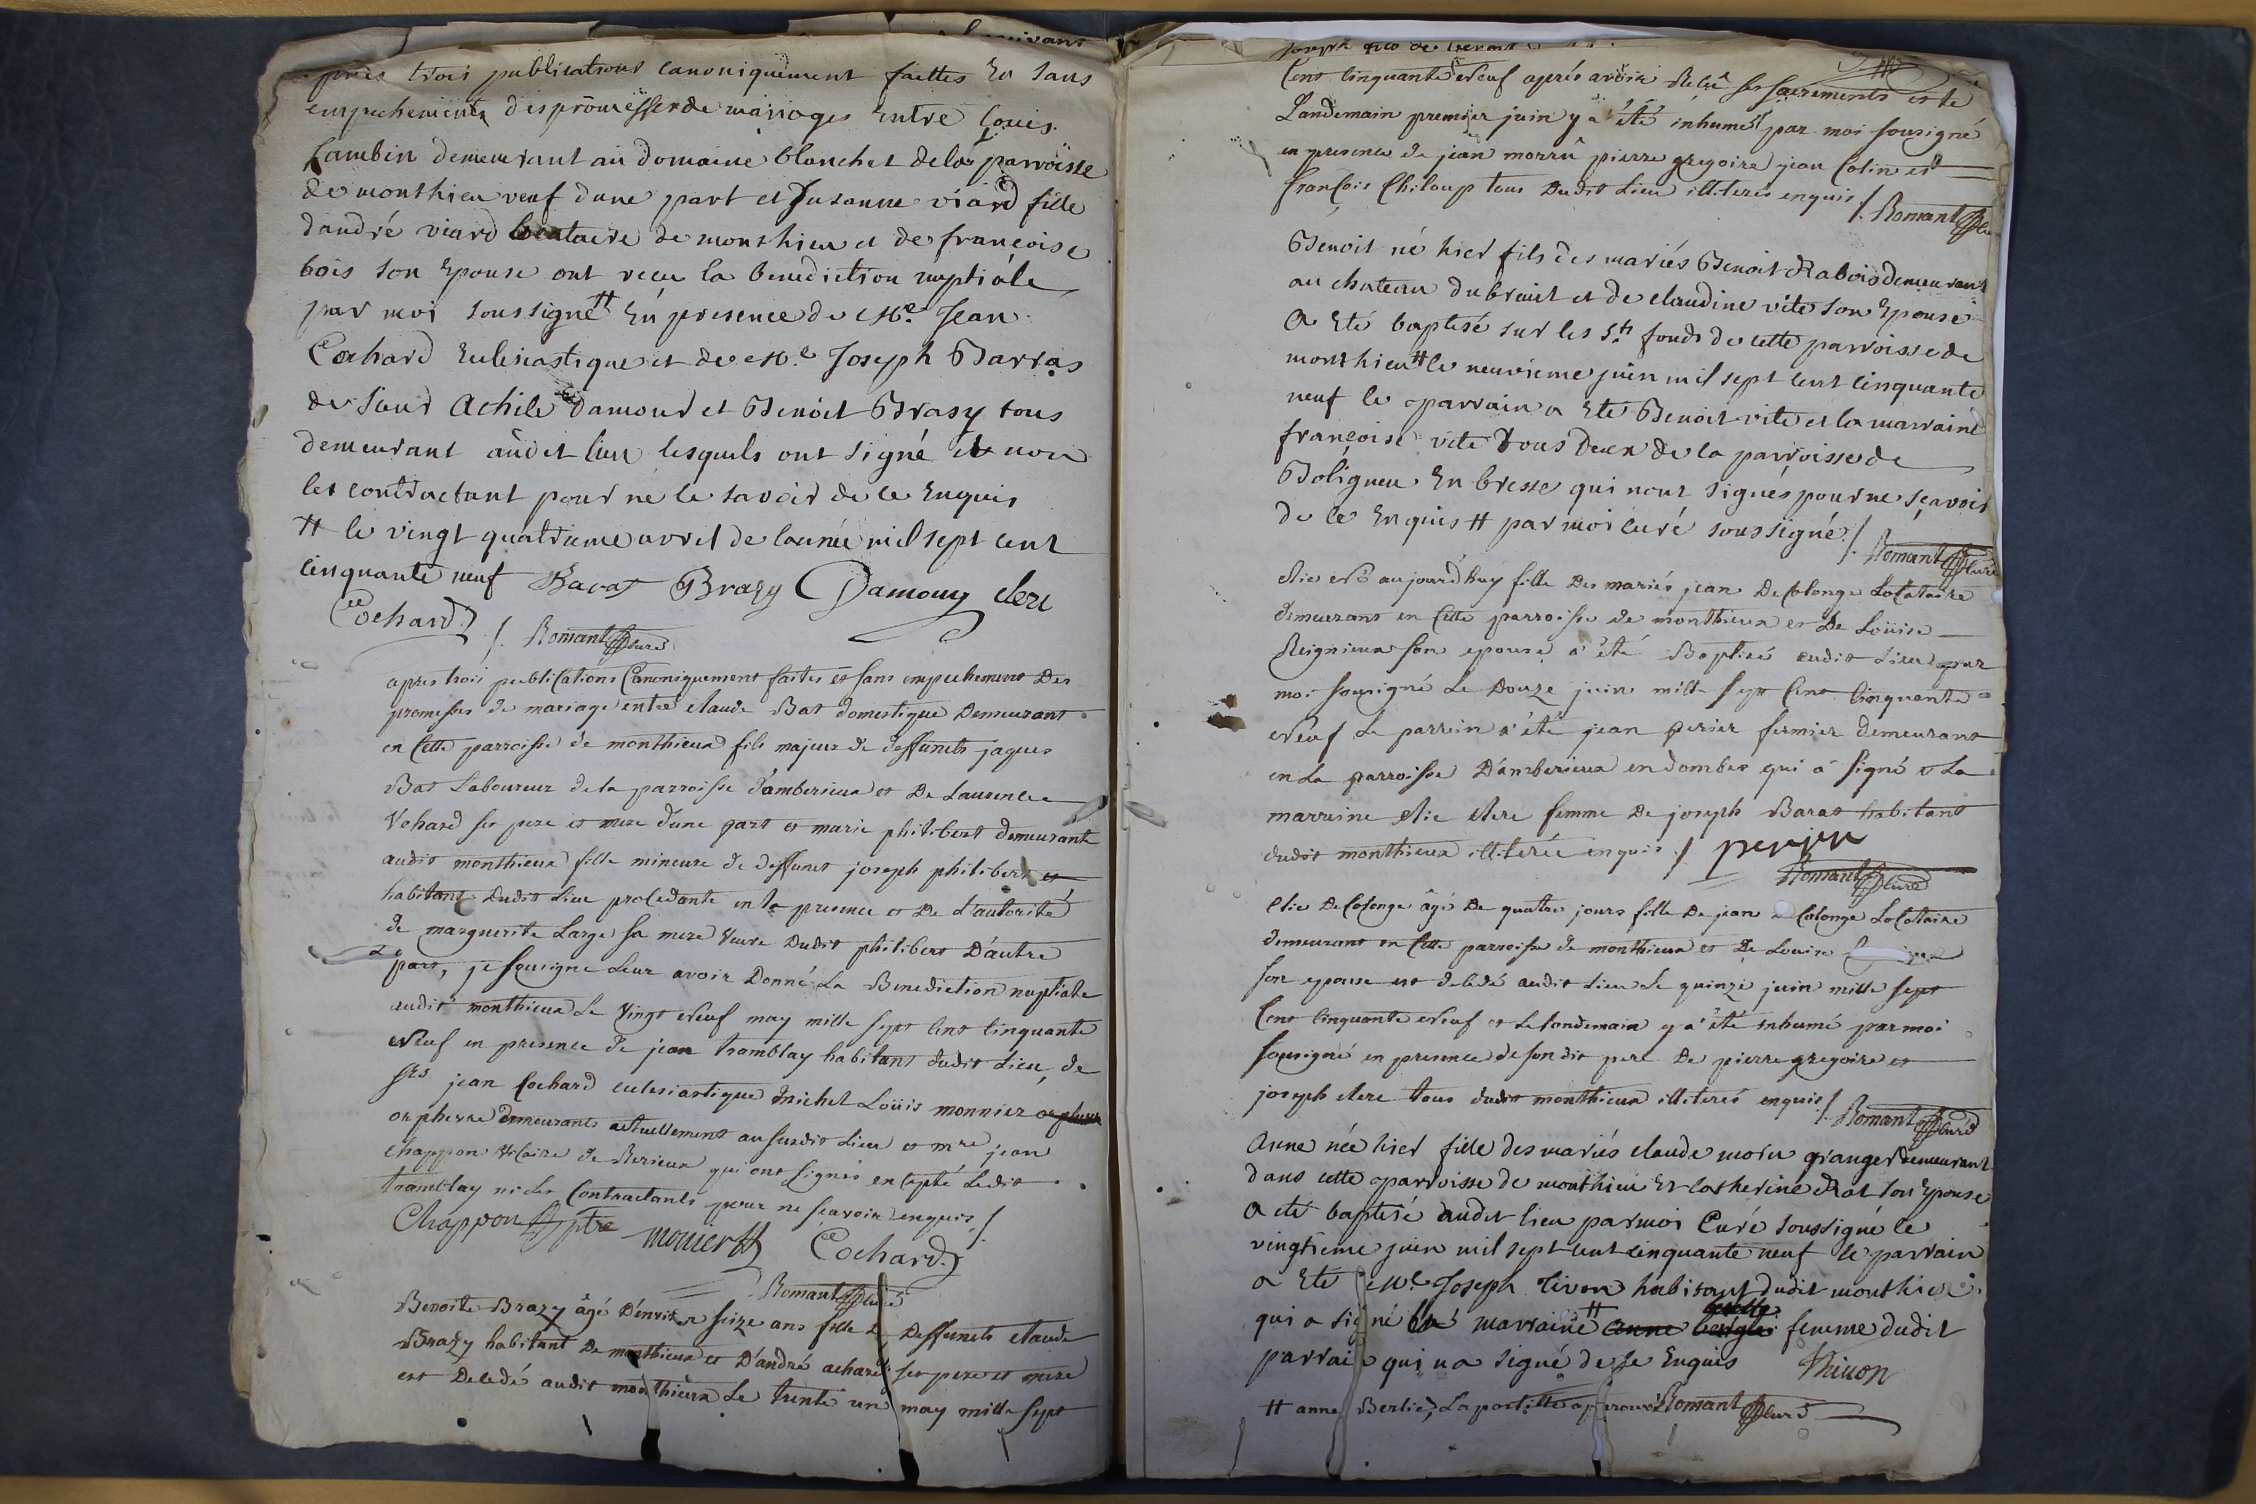 après trois publications canoniquement faittes Et sans
empechements des promesses de mariages Entre Louis
Lambin demeurant au domaine blanchet de la parroisse
de monthieu veuf dune part et Susanne viard fille
dandré viard locataire de monthieu et de francoise
bois son Epouse ont recu la benediction nuptiále
par moi soussigné # En presence de Me. Jean
Cochard Eclesiastique et de Me. Joseph Barras
de Sieur Achile damour et Benoit Brasy tous
demeurant audit lieu lesquels ont signé et non
les contractant pour ne le savoir de ce Enquis
# le vingt quatrieme avril de lanné mil sept cent
cinquante neuf Barat Brazy Damour clerc
Cochard ./. Romant Curé
apres trois publications Canoniquement faites et sans empechement Des
promesses de mariage entre claude Bat domestique Demeurant
en cette parroisse de monthieux fils majeur de deffunts jaques
Bat Laboureur de la parroisse d'amberieux et De Laurence
Vchard ses pere et mere d'une part et marie philibert demeurante
audit monthieux fille mineure de deffunt joseph philibert et
habitant Dudit Lieu procedante en la presence et De L'autorité
de marguerite Large sa mere veuve Dudit philibert D'autre
part, je sousigne Leur avoir Donné La Benediction nuptiale
audit monthieux Le vingt neuf may mille sept Cent Cinquante
Neuf en presence de jean tramblay habitant dudit Lieu, de
srs jean Cochard eclesiastique michel Loüis monnier orphevre
orphevre demeurants actuellement au susdit Lieu et mre jean
Chappon vicaire de Rerieux qui ont signés excepté Ledit
tramblay ni les Contractants pour ne scavoir enquis ./.
Chappon ptre monier Cochard
Romant Curé
Benoite Brazy âgé D'environ seize ans fille De Deffunts claude
Brazy habitant De monthieux et D'andré achard ses pere et mere
est Decedé audit monthieux Le trente un may mille sept
Cent Cinquante Neuf aprés avoir Reçû ses sacrements et le
Landemain premier juin y a été inhumé par moi sousigné
en presence de jean morrû pierre gregoire jean Colin et
françois Chiloup tous Dudit Lieu illiterés enquis ./. Romant Curé
Benoit né hier fils des mariés Benoit Rabois demeurant
au chateau du breuil et de claudine vite son Epouse
A Eté baptisé sur les Sts fonds de cette parroisse de
monthieu # le neuvieme juin mil sept cent cinquante
neuf le parrain a Eté Benoit vite et la marraine
françoise vite tous deux de la parroisse de
Boligneu En bresse qui nont signés pour ne sçavoir
de ce Enquis # par moi curé soussigné ./. Romant Curé
elie Né aujourd'huy fille Des mariés jean DeColonge LoCataire
demeurant en Cette parroisse de monthieux et De Loüise
Reignieux son epouse a été Baptisé audit Lieu par
moi sousigné Le Douze juin mille sept Cent Cinquante
Neuf Le parrin a été jean perier fermier demeurant
en La parroisse D'amberieux en dombes qui a signé et La
marraine elie clere femme De joseph Barat habitant
dudit monthieux illiterée enquis ./. perier
Romant Curé
elie DeColonge âgé De quatre jours fille De jean DeColonge LoCataire
demeurant en Cette parroisse de monthieux et De Louise
son epouse est decedé audit Lieu Le quinze juin mille sept
Cent Cinquante Neuf et Le Landemain y a été inhumé par moi
sousigné en presence de son dit pere De pierre gregoire et
joseph clere tous dudit monthieux illiterés enquis ./. Romant Curé
Anne née hier fille des mariés claude moru granger demeurant
dans cette parroisse de monthieu Et catherine Rat son Epouse
A eté baptisé audit lieu par moi Curé soussigné le
vingtieme juin mil sept cent cinquante neuf le parrain
a Eté Me. Joseph Tivon habitant dudit monthieu
qui a signé la marraine # anne femme dudit
parrain qui na signé de se Enquis Thivon
# anne Berlie, La postille approuvé Romant Curé